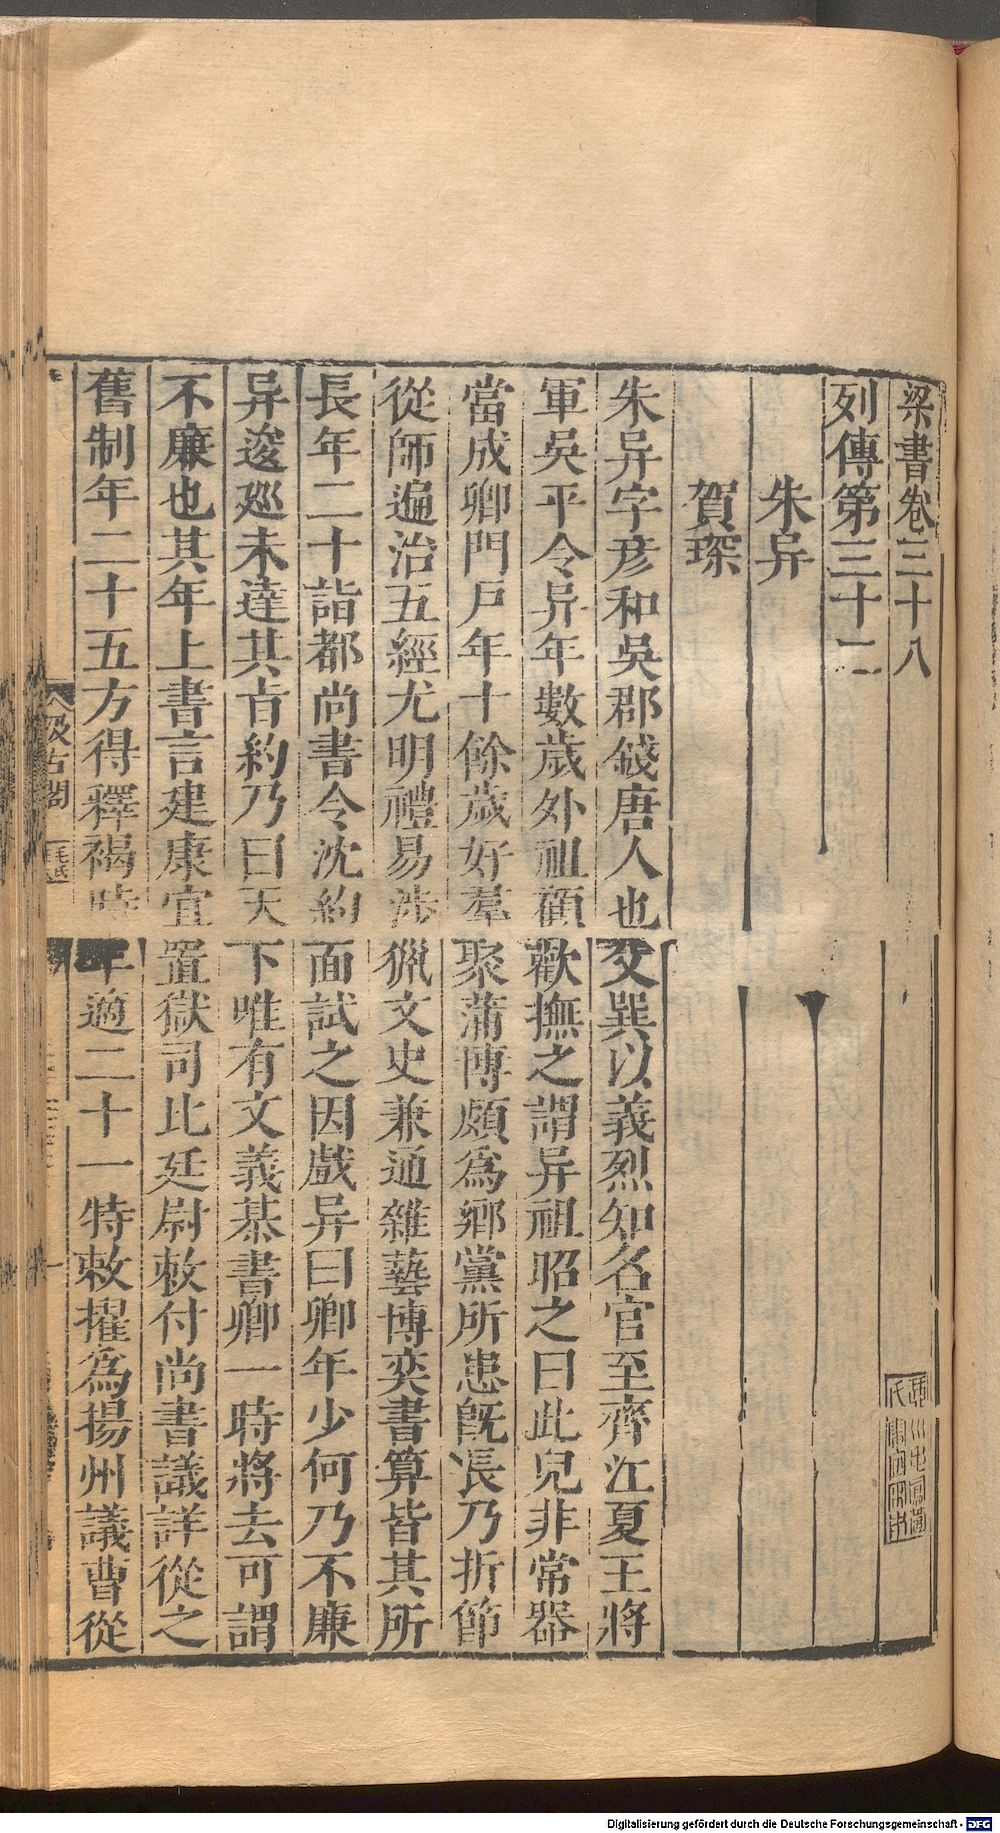 梁書卷三十八
列傳第三十二
朱异
賀琛
朱异字彥和吳郡錢唐人也父巽以義烈知名官至齊江夏王將
軍吳平令异年數歲外祖顧歡撫之謂异祖昭之曰此兒非常器
當成卿門戶年十餘歲好羣聚蒲博頗爲鄉黨所患旣長乃折節
從師遍治五經尤明禮易涉獵文史兼通雜藝博奕書算皆其所
長年二十詣都尚書令沈約面試之因戲异曰卿年少何乃不廉
异逡廵未達其旨約乃曰天下唯有文義棊書卿一時將去可謂
不廉也其年上書言建康宜置獄司比廷尉敕付尚書議詳從之
舊制年二十五方得釋褐時年適二十一特敕擢爲揚州議曹從
汲古閣
毛氏
Digitalisierung gefördert durch die Deutsche Forschungsgemeinschaft - DFG